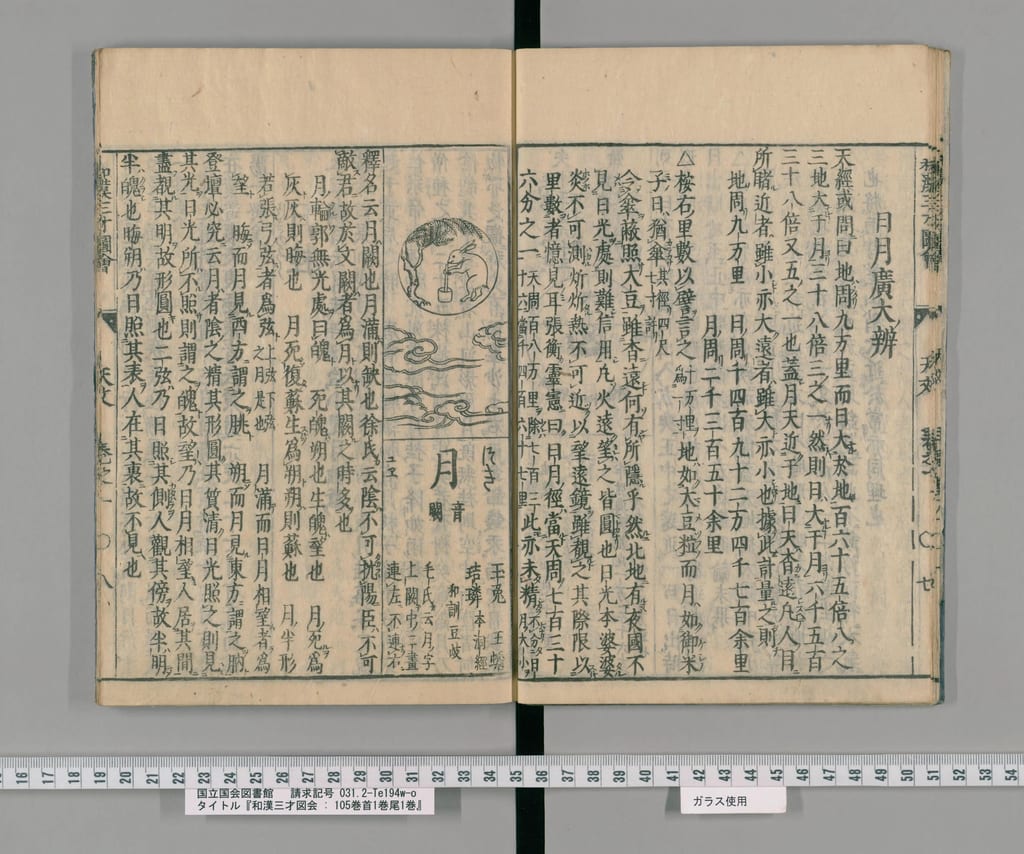 日月廣大辨
天經或問曰地周九万里而日大於地百六十五倍八之
三地大于月三十八倍三之一然則日大于月六千五百
三十八倍又五之一也蓋月天近于地日天杳遠凡人目
所睹近者雖小亦大遠者雖大亦小也據此計量之則
地周九万里　日周千四百九十二万四千七百余里
月周二千三百五十余里
△桉右里數以譬言之
地如大豆粒而月如御米
子日猶傘
全傘蔽照大豆雖杳遠何有所隱乎然北地有夜國不
見日光處則難信用凡火遠望之皆圓也日光本婆婆
炎不可測炘炘熱不可近以望遠鏡雖覩之其際限以
里數者憶見耳張衡靈憲曰日月徑當天周七百三十
六分之一
此亦未精
和漢三才圖會
天文
つき
月
音
闕
玉兎
結璘
和訓豆岐
毛氏云月字
上闕中二畫
連左不連右
釋名云月闕也月滿則缺也徐氏云陰不可抗陽臣不可
敵君故於文闕者爲月以其闕之時多也
月輪郭無光處曰魄　死魄朔也生魄望也　月死爲
灰灰則晦也　月死復蘇生爲朔朔則蘇也　月半形
若張弓弦者爲弦　月滿而日月相望者爲
望　晦而月見西方謂之朓　朔而月見東方謂之朒
登壇必究云月者陰之精其形圓其質清日光照之則見
其光日光所不照則謂之魄故望乃日月相望人居其間
盡覩其明故形圓也二弦乃日照其側人觀其傍故半明
半魄也晦朔乃日照其表人在其裏故不見也
和漢三才圖會
天文
卷之一
〇
八
16 17 18 19 20 21 22 23 24 25 26 27 28 29 30 31 32 33 34 35 36 37 38 39 40 41 42 43 44 45 46 47 48 49 50 51 52 53 54
国立国会図書館　請求記号 031.2-Te194w-o
タイトル『和漢三才図会 : 105巻首1巻尾1巻』
ガラス使用